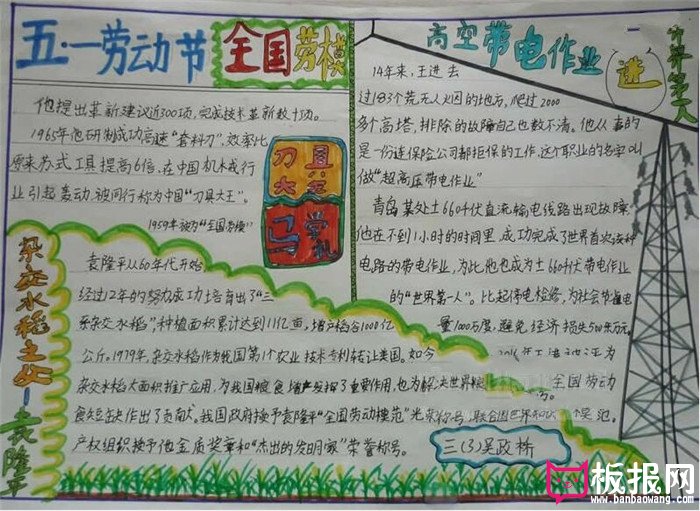 五·一劳动节
全国劳模
他提出革新建议近300项,完成技术革新数十项。
1965年他研制成功高速“套料刀”,效率比
原来苏式工具提高6倍,在中国机械行
业引起轰动,被同行称为中国“刀具大王”。
1959年被为“全国劳模”
刀具
大王
马学礼
杂交水稻之父—袁隆平
袁隆平从60年代开始,
经过12年的努力成功培育出了“三
系杂交水稻”,种植面积累计达到11亿亩,增产稻谷1000亿
公斤。1979年,杂交水稻作为我国第1个农业技术专利转让美国。如今
杂交水稻大面积推广应用,为我国粮食增产发挥了重要作用,也为解决世界粮
食短缺作出了贡献。我国政府授予袁隆平“全国劳动模范”光荣称号,联合国世界知识
产权组织授予他金质奖章和“杰出的发明家”荣誉称号。
高空带电作业
世界第一人
进
14年来,王进去
过183个荒无人烟的地方,爬过2000
多个高塔,排除的故障自己也数不清。他从事的
是一份连保险公司都拒保的工作,这个职业的名字叫
做“超高压带电作业”
青岛某处±660千伏直流输电线路出现故障,
他在不到1小时的时间里,成功完成了世界首次该种
电路的带电作业,为此他也成为±660千伏带电作业
的“世界第一人”。比起停电检修,为社会节省电
量1000万度,避免经济损失500余万元。
全国劳动
三(3)吴政桥
板报网
www.banbaowang.com